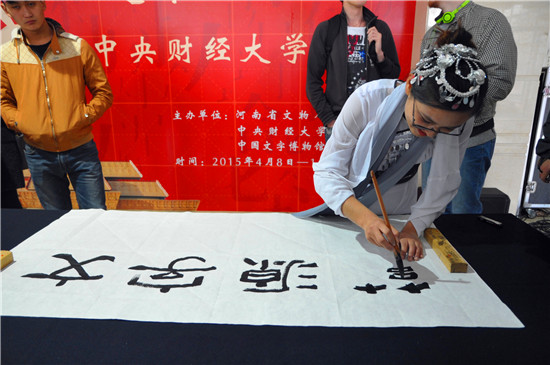 中央财经大学
主办单位：河南省文物
中央财经大学
中国文字博物馆
时间：2015年4月8日—
文字源